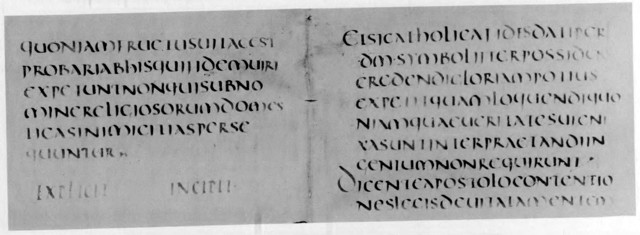 QUONIAMFRUCTUSUITAEEST
PROBARIABHISQUIFIDEMUIRI
EXPETUNTNONQUISUBNO
MINERELIGIOSORUMDOMES
TICASINIMICITIASPERSE
QUUNTUR
EXPLICIT INCIPIT
ETSICATHOLICAFIDISDATIPER
DM·SYMBOLIITERPOSSIDEN
CREDENDIGLORIAMPOTIUS
EXPETITQUAMLOQUENDIQUO
NIAMQUAEUERITATESUIENI
XASUNTINTERPRAETANDIIN
GENIUMNONREQUIRUNT·
DICENTEAPOSTOLOCONTENTIO
NESLEGISDEUITATAMENTEM